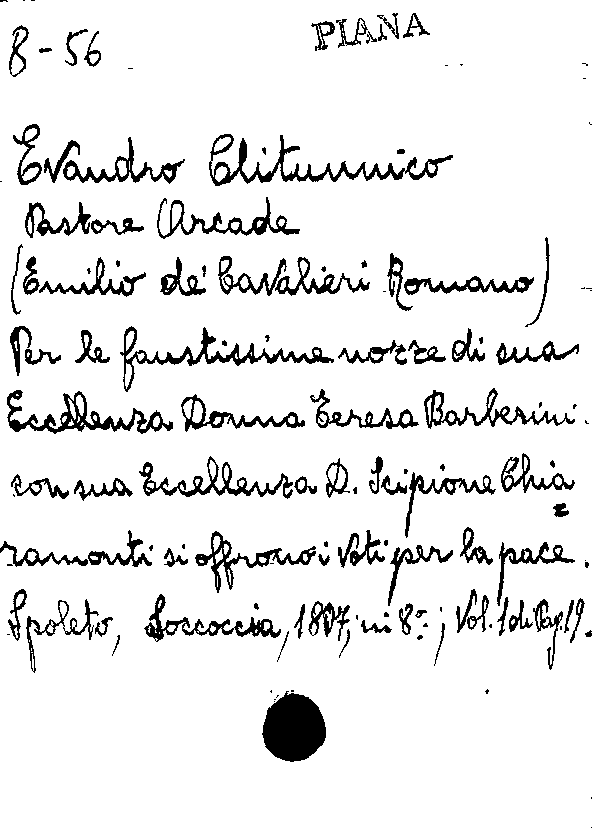 B-56
PIANA
Evandro Clitunnico
Pastore Arcade
(Emilio de' Cavalieri Romano)
Per le faustissime nozze di sua
Eccellenza Donna Teresa Barberini
con sua Eccellenza D. Scipione Chia=
ramonti si offrono i Voti per la pace.
Spoleto, Soccoccia, 1807, in 8°; Vol. 1 di Pag. 19.